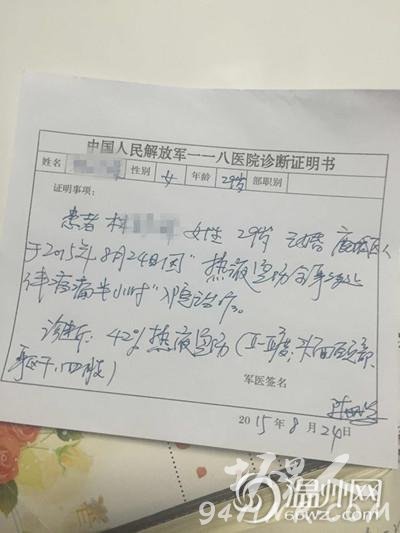 中国人民解放军一一八医院诊断证明书
姓名 性别 女 年龄 29岁 部职别
证明事项:
患者 林 女性 29岁 已婚 鹿城区人
于2015年8月24日因"热液烫伤全身多处
伴疼痛半小时"入院治疗。
诊断: 42%热液烫伤(II-III度,头面颈部、
躯干、四肢)
军医签名
2015年8月24日
温州网
66wz.com